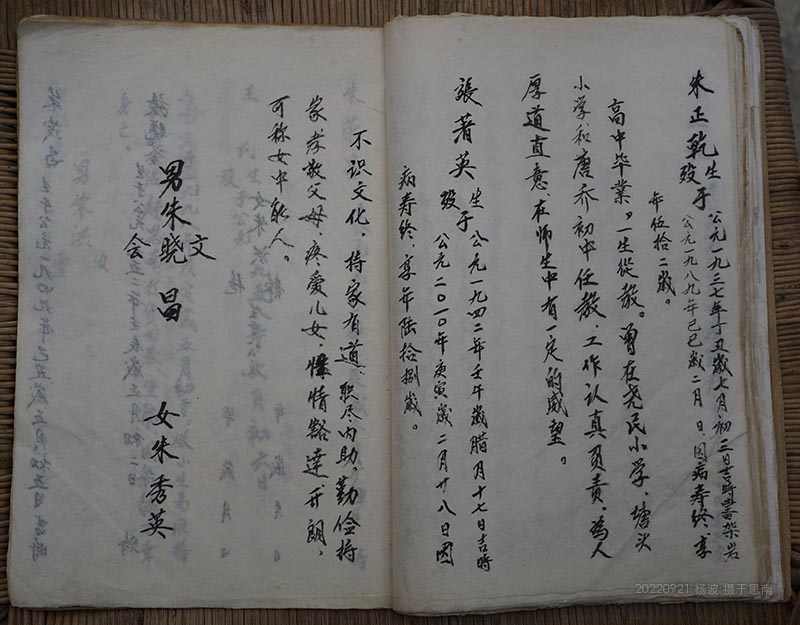 朱正乾生于公元一九三七年丁丑歲七月初三日吉時
殁公元一九八九年己巳歲二月 日,因病寿终,享
年伍拾二歲。
高中毕業。一生從教。曽在尧民小学、塘头
小学和唐乔初中任教,工作认真负责,為人
厚道直意,在师生中有一定的威望。
張著英生于公元一九四二年壬午歲腊月十七日吉時
殁公元二〇一〇年庚寅歲二月廿八日因
病寿终,享年陆拾捌歲。
不识文化,持家有道,职尽内助。勤俭持
家孝敬父母,疼爱儿女,情豁達开朗,
可称女中能人。
男朱晓
文
会
昌
女朱秀英
20220921 杨波 摄于思南